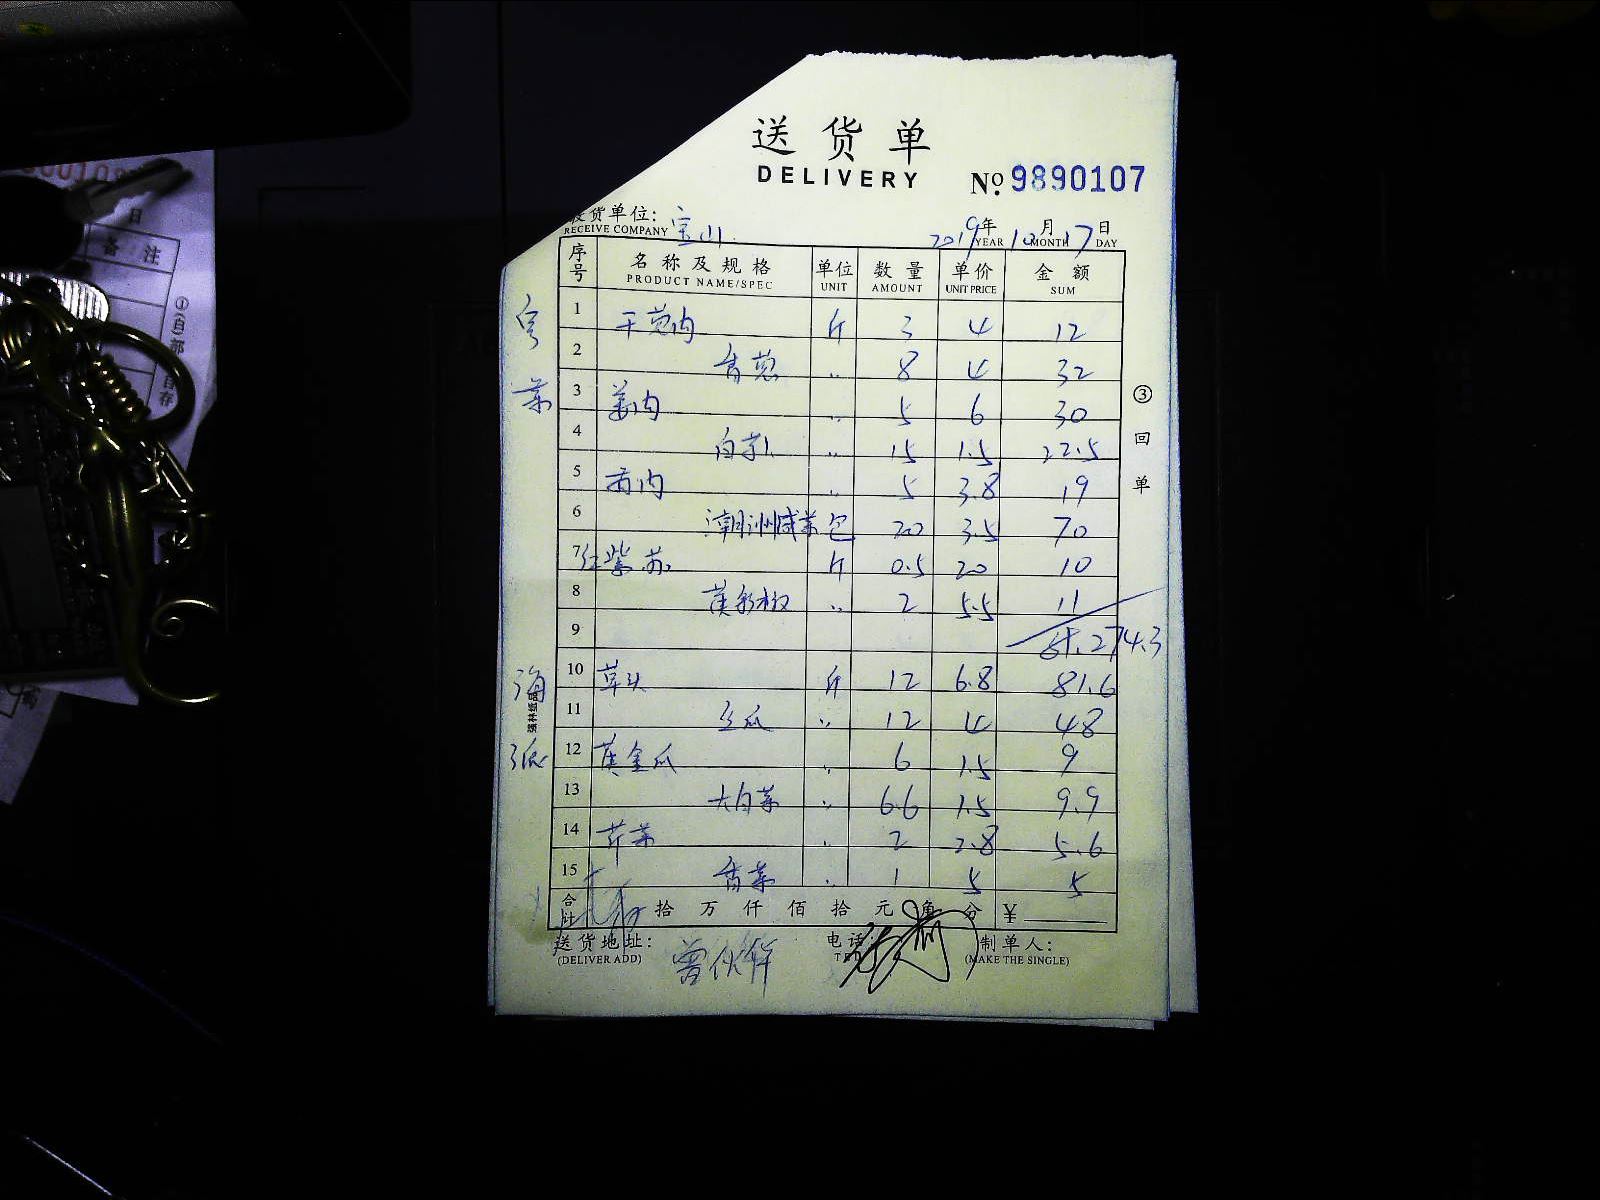 送货单
DELIVERY
No. 9890107
收货单位: 宝山
RECEIVE COMPANY
2019年 10月 17日
YEAR MONTH DAY
序号 名称及规格 单位 数量 单价 金额
PRODUCT NAME/SPEC UNIT AMOUNT UNIT PRICE SUM
1 干葱肉 斤 3 4 12
2 香葱 〃 8 4 32
3 姜肉 〃 5 6 30
4 〃 15 1.5 22.5
5 〃 5 3.8 19
6 潮州咸菜 包 20 3.5 70
7 红紫苏 斤 0.5 20 10
8 黄彩椒 〃 2 5.5 11
9 274.3
10 草头 斤 12 6.8 81.6
11 丝瓜 〃 12 4 48
12 黄金瓜 〃 6 1.5 9
13 大白菜 〃 6.6 1.5 9.9
14 芹菜 〃 2 2.8 5.6
15 香菜 〃 1 5 5
合计 拾 万 仟 佰 拾 元 角 分 ¥
送货地址: 电话: 制单人:
(DELIVER ADD) TEL (MAKE THE SINGLE)
③回单
强林纸品
备注
日
①(白)部